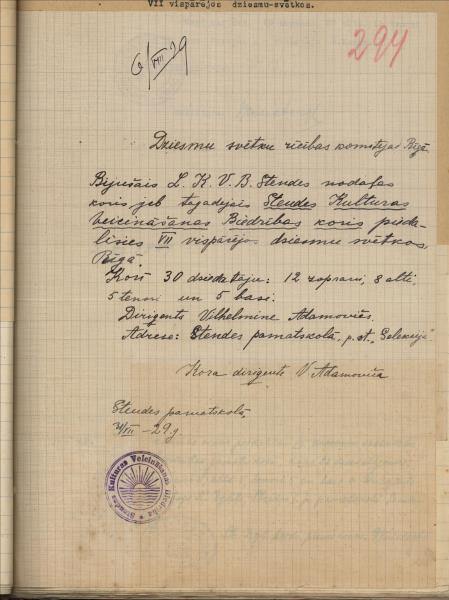 VII vispārējos dziesmu-svētkos.
294
6/VIII 29
Dziesmu svētku rīcības komitejai Rīgā.
Bijušais L. K. V. B. Stendes nodaļas
koris jeb tagadejais Stendes Kulturas
Veicināšanas Biedrības koris pieda-
lisies VII vispārejos dziesmu svētkos,
Rīgā.
Korī 30 dziedatāju: 12 soprani, 8 alti,
5 tenori un 5 basi.
Dirigents Vilhelmine Adamovičs.
Adrese: Stendes pamatskolā, p. st. „Selekcija"
Kora dirigente V Adamoviča
Stendes pamatskolā,
VIII - 29. g.
Stendes Kulturas Veicināšanas Biedrība